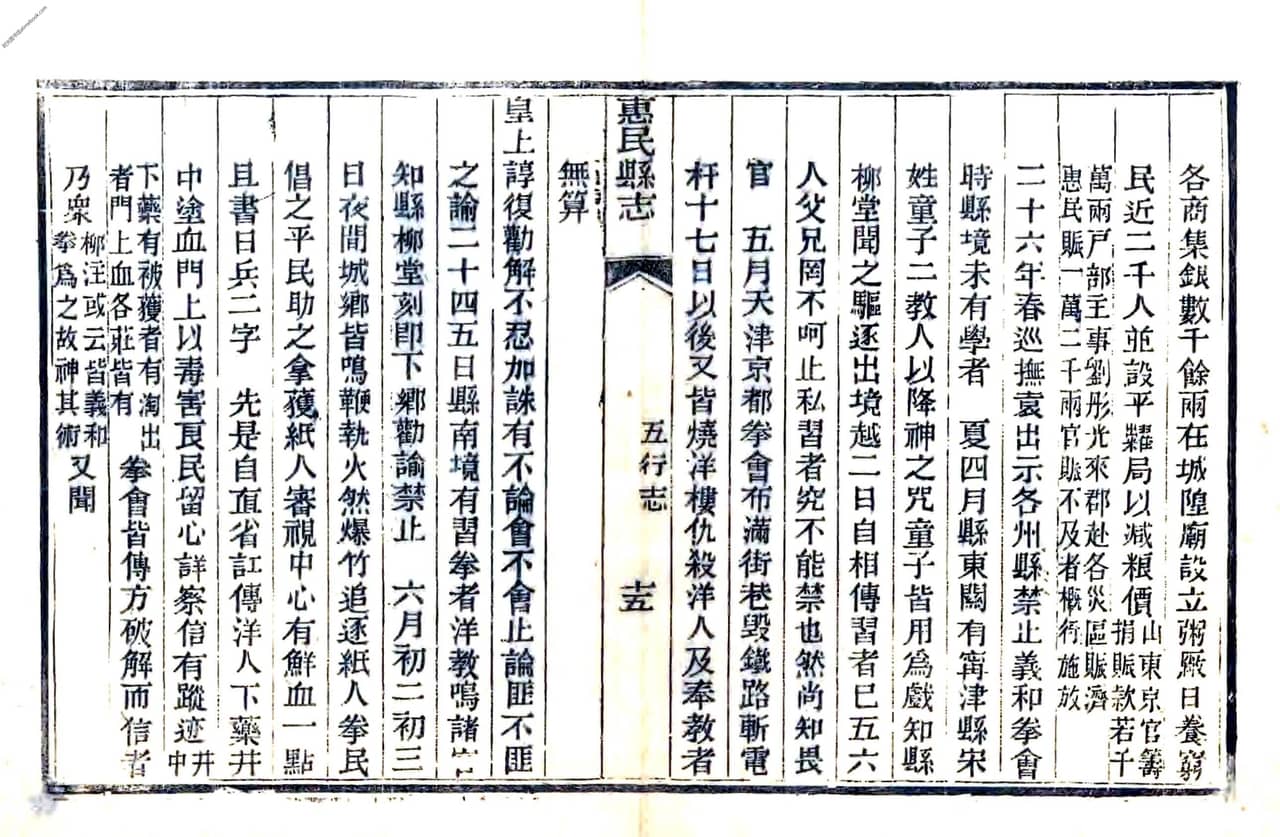 各商集銀數千餘兩在城隍廟設立粥厰日養窮
民近二千人並設平糶局以減粮價山東京官籌捐賑款若千
萬兩戸部主事劉彤光來郡赴各災區賑濟
惠民賑一萬二千兩官賑不及者概行施放
二十六年春巡撫袁出示各州縣禁止義和拳會
時縣境未有學者 夏四月縣東關有甯津縣宋
姓童子二教人以降神之咒童子皆用爲戲知縣
柳堂聞之驅逐出境越二日自相傳習者巳五六
人父兄罔不呵止私習者究不能禁也然尚知畏
官 五月天津京都拳會布滿街巷毀鐵路斬電
杆十七日以後又皆燒洋樓仇殺洋人及奉教者
惠民縣志
五行志
十五
無算
皇上諄復勸解不忍加誅有不論會不會止論匪不匪
之諭二十四五日縣南境有習拳者洋教鳴諸官
知縣柳堂刻即下鄉勸諭禁止 六月初二初三
日夜間城鄉皆鳴鞭執火然爆竹追逐紙人拳民
倡之平民助之拿獲紙人審視中心有鮮血一點
且書日兵二字 先是自直省訌傳洋人下藥井
中塗血門上以毒害良民留心詳察信有蹤迹井中
下藥有被獲者有淘出
者門上血各莊皆有
拳會皆傳方破解而信者
乃衆柳汪或云皆義和
拳爲之故神其術
又聞